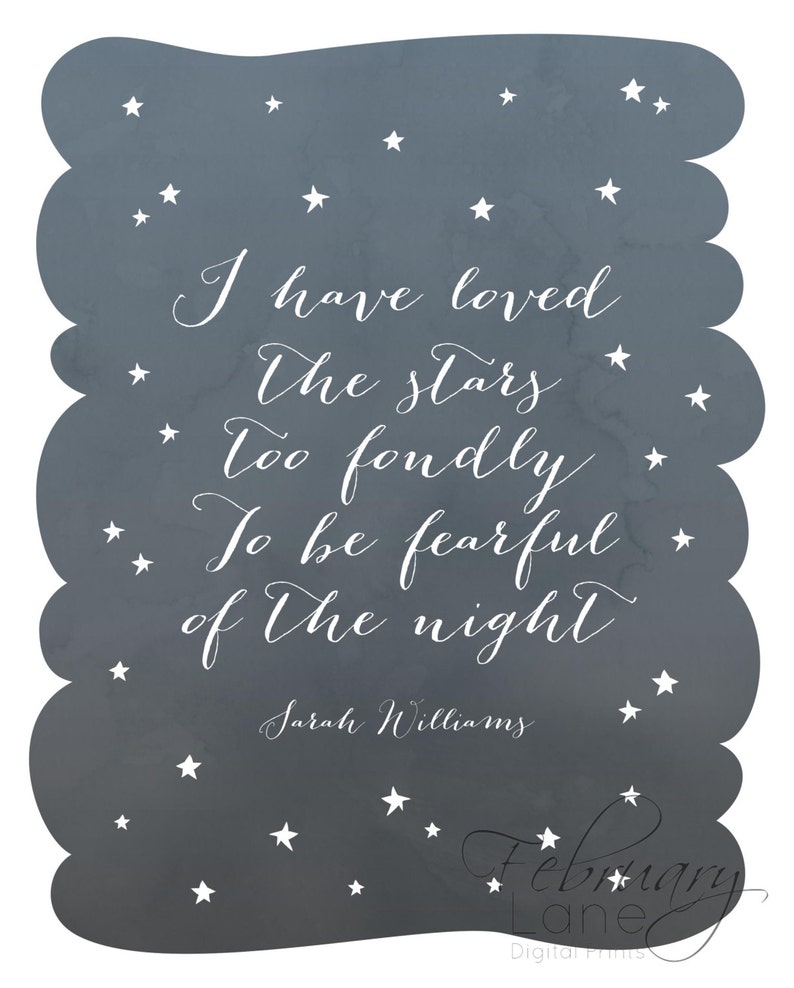 I have loved
the stars
too fondly
To be fearful
of the night
Sarah Williams
February
Lane
Digital Prints